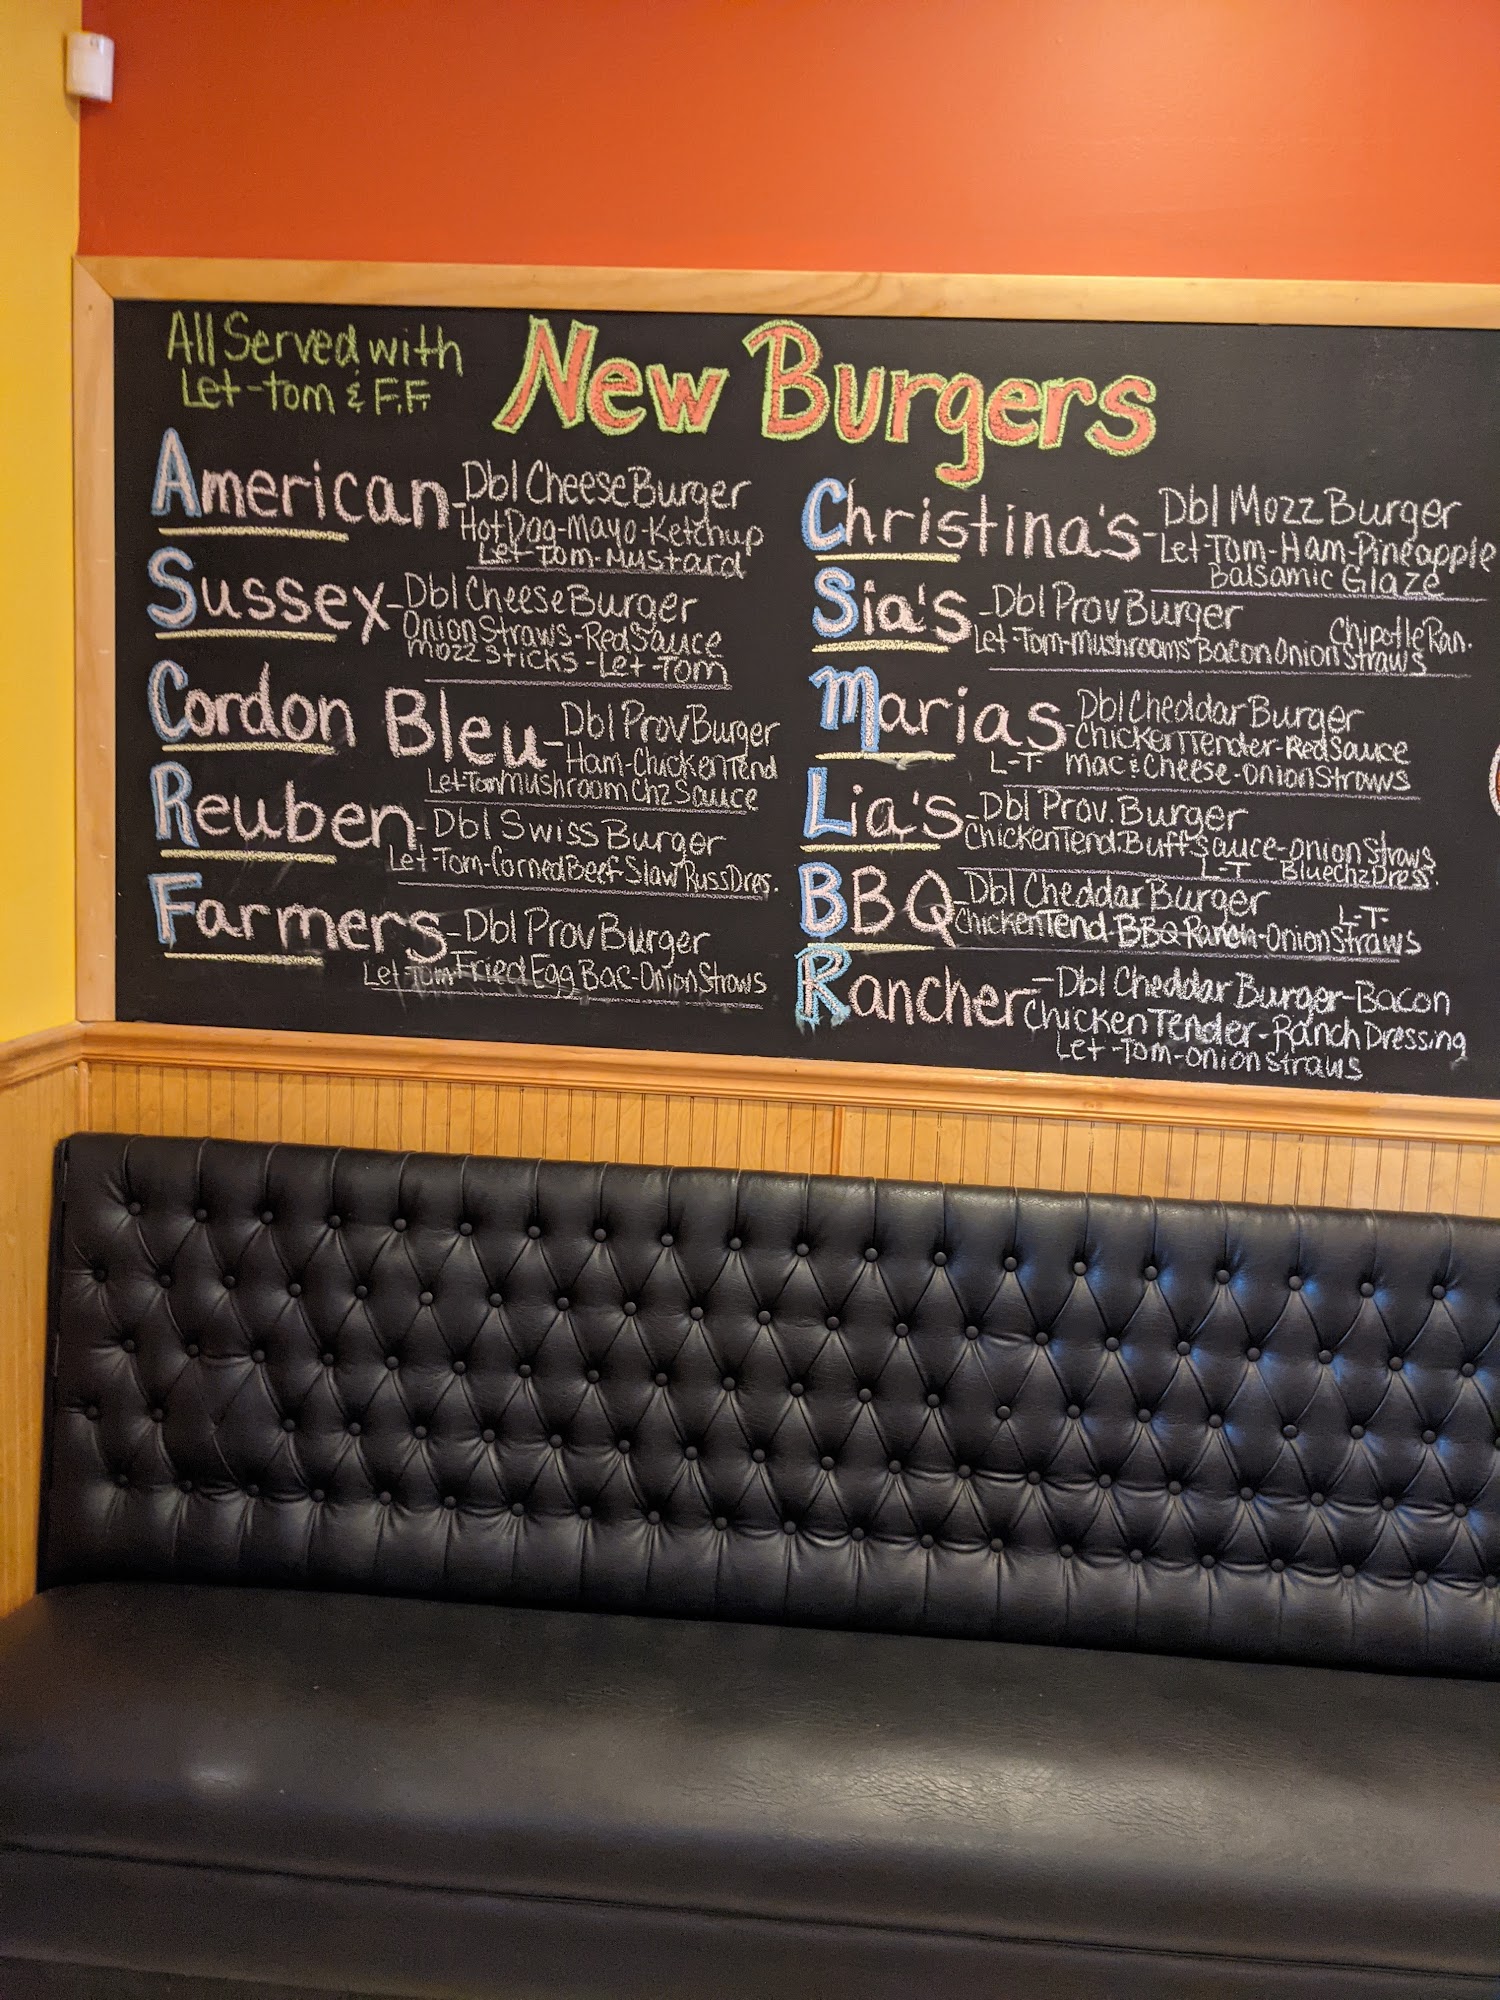 All Served with
Let-Tom & F.F.
New Burgers
American-Dbl Cheese Burger
Hot Dog-Mayo-Ketchup
Let-Tom-Mustard
Sussex-Dbl Cheese Burger
Onion Straws-Red Sauce
Mozz Sticks-Let-Tom
Cordon Bleu-Dbl Prov Burger
Ham-Chicken Tend
Let-Tom Mushroom Chz Sauce
Reuben-Dbl Swiss Burger
Let-Tom-Corned Beef Slaw Russ Dres.
Farmers-Dbl Prov Burger
Let-Tom-Fried Egg Bac-Onion Straws
Christina's-Dbl Mozz Burger
Let-Tom-Ham-Pineapple
Balsamic Glaze
Sia's-Dbl Prov Burger
Chipotle Ran.
Let-Tom-Mushrooms Bacon Onion Straws
Marias-Dbl Cheddar Burger
Chicken Tender-Red Sauce
L-T- Mac & Cheese-Onion Straws
Lia's-Dbl Prov. Burger
Chicken Tend. Buff Sauce-Onion Straws
L-T Blue Chz Dress.
BBQ-Dbl Cheddar Burger
L-T-
Chicken Tend-BBQ Ranch-Onion Straws
Rancher-Dbl Cheddar Burger-Bacon
Chicken Tender-Ranch Dressing
Let-Tom-Onion Straws